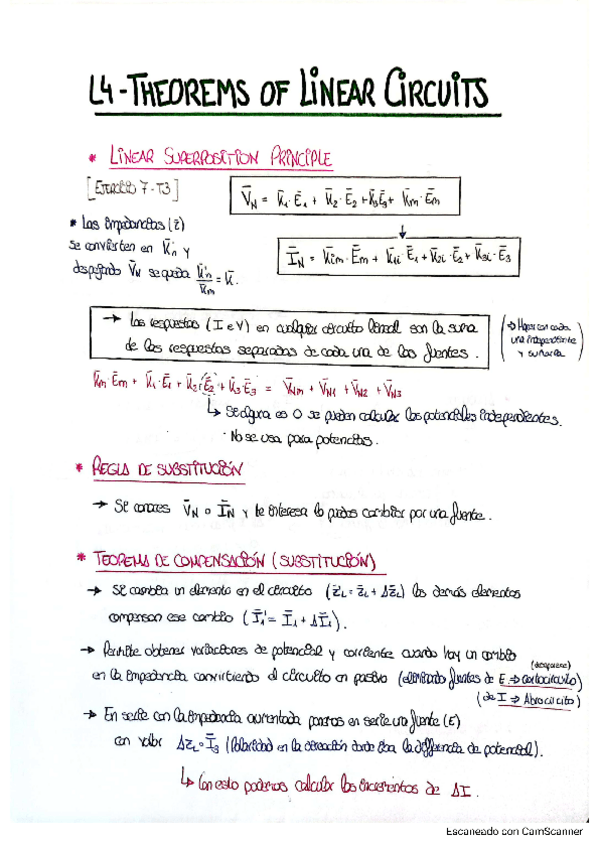 L4-THEOREMS OF LINEAR CIRCUITS
* LINEAR SUPERPOSITION PRINCIPLE
[EJERCICIO 7-T3]
V̄N = K̄1·Ē1 + K̄2·Ē2 + K̄3Ē3 + K̄m·Ēm
* Las impedancias (z̄)
se convierten en K̄'n y
despejando V̄N se queda K̄'n/K̄m = K̄.
ĪN = K̄im·Ēm + K̄1i·Ē1 + K̄2i·Ē2 + K̄3i·Ē3
→ Las respuestas (I e V) en cualquier circuito lineal son la suma
de las respuestas separadas de cada una de las fuentes.
(⇒ Hacer con cada
una independiente
y sumarla)
K̄m·Ēm + K̄1·Ē1 + K̄2·Ē2 + K̄3·Ē3 = V̄Nm + V̄N1 + V̄N2 + V̄N3
↳ Si alguna es 0 se pueden calcular los potenciales independientes.
· No se usa para potencias.
* REGLA DE SUBSTITUCIÓN
→ Si conoces V̄N o ĪN y te interesa lo puedes cambiar por una fuente.
* TEOREMA DE COMPENSACIÓN (SUBSTITUCIÓN)
→ Si cambia un elemento en el circuito (z̄'L = z̄L + Δz̄L) los demás elementos
compensan ese cambio (Ī1' = Ī1 + ΔĪ1).
→ Permite obtener variaciones de potencial y corriente cuando hay un cambio
en la impedancia convirtiendo el circuito en pasivo (eliminando fuentes de E ⇒ cortocircuito)
(desaparece)
(de I ⇒ Abrocircito)
→ En serie con la impedancia aumentada ponemos en serie una fuente (E)
con valor Δz̄L·Ī3 (Polaridad en la dirección donde iba la diferencia de potencial).
↳ Con esto podemos calcular los incrementos de ΔI.
Escaneado con CamScanner